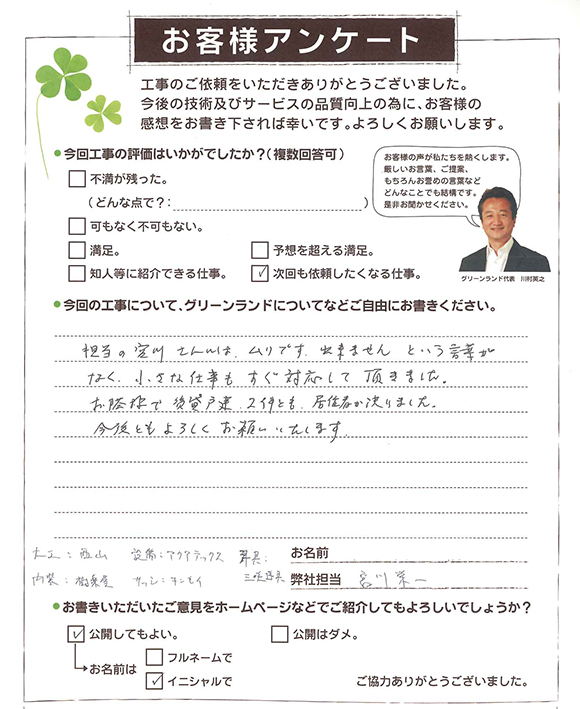 お客様アンケート
工事のご依頼をいただきありがとうございました。
今後の技術及びサービスの品質向上の為に、お客様の
感想をお書き下されば幸いです。よろしくお願いします。
今回工事の評価はいかがでしたか？（複数回答可）
不満が残った。
（どんな点で？：　　　）
可もなく不可もない。
満足。
予想を超える満足。
知人等に紹介できる仕事。
✓ 次回も依頼したくなる仕事。
お客様の声が私たちを熱くします。
厳しいお言葉、ご提案、
もちろんお誉めの言葉など
どんなことでも結構です。
是非お聞かせください。
グリーンランド代表　川村英之
今回の工事について、グリーンランドについてなどご自由にお書きください。
担当の宮川さんは、ムリです、出来ません という言葉が
なく、小さな仕事も すぐ対応して 頂きました。
お陰様で 賃貸戸建 2件とも、居住者が決りました。
今後とも よろしく お願いいたします。
大工：西山　設備：アクアテックス　建具：
内装：　サッシ：
お名前
弊社担当　宮川栄一
お書きいただいたご意見をホームページなどでご紹介してもよろしいでしょうか？
✓ 公開してもよい。
公開はダメ。
お名前は
フルネームで
✓ イニシャルで
ご協力ありがとうございました。